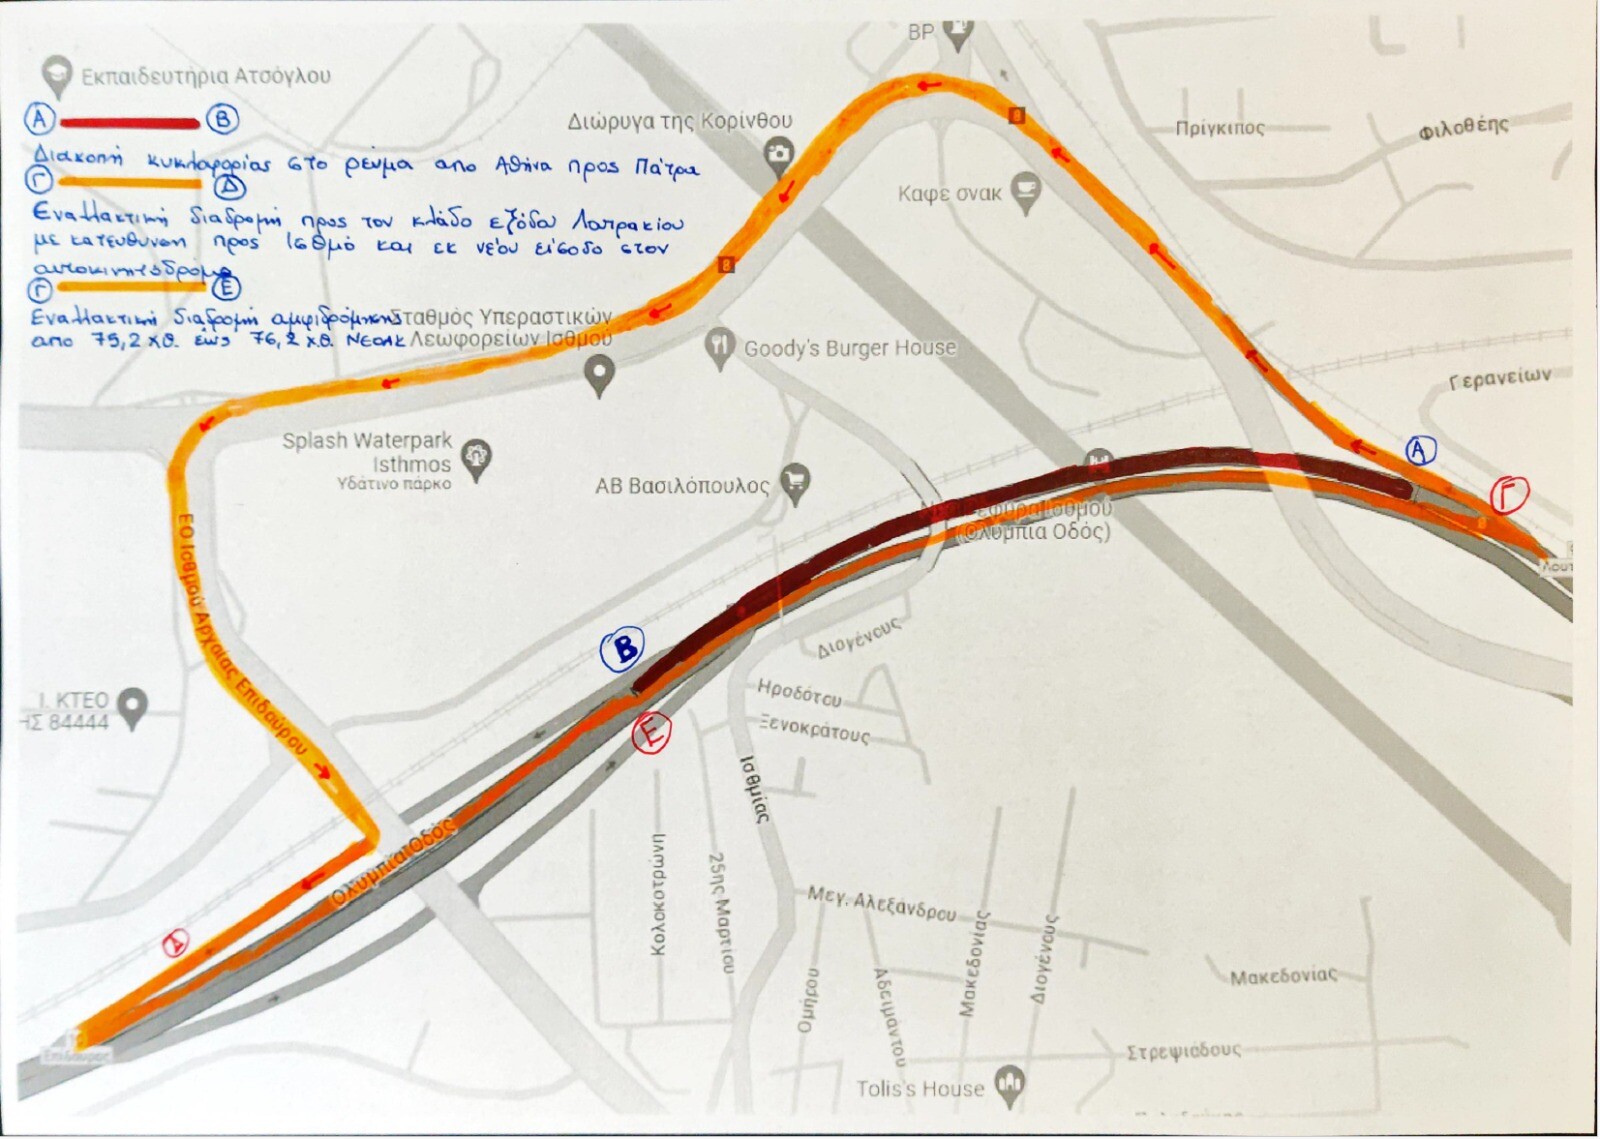 BP
Εκπαιδευτήρια Ατσόγλου
Α Β
Διακοπή κυκλοφορίας στο ρεύμα απο Αθήνα προς Πάτρα
Γ Δ
Εναλλακτική διαδρομή προς τον κλάδο εξόδου Λουτρακίου
με κατεύθυνση προς Ισθμό και εκ νέου είσοδο στον
αυτοκινητόδρομο
Γ Ε
Εναλλακτική διαδρομή αμφιδρόμηση
απο 75,2 χθ. έως 76,2 χ.θ. ΝΕΟΑΚ
Διώρυγα της Κορίνθου
8
Πρίγκιπος
Φιλοθέης
Καφε σνακ
8
Σταθμός Υπεραστικών
Λεωφορείων Ισθμού
Goody's Burger House
Γερανείων
Splash Waterpark
Isthmos
Υδάτινο πάρκο
ΑΒ Βασιλόπουλος
Α
Γ
Γέφυρα Ισθμού
(Ολυμπία Οδός)
Λουτ
ΕΟ Ισθμού Αρχαίας Επιδαύρου
Β
Ε
Διογένους
Ηροδότου
Ξενοκράτους
Ισθμίας
Ι. ΚΤΕΟ
ΗΣ 84444
Ολυμπία Οδός
Κολοκοτρώνη
25ης Μαρτίου
Μεγ. Αλεξάνδρου
Μακεδονίας
Διογένους
Ομήρου
Αδειμάντου
Μακεδονίας
Δ
Επίδαυρος
Στρεψιάδους
Tolis's House